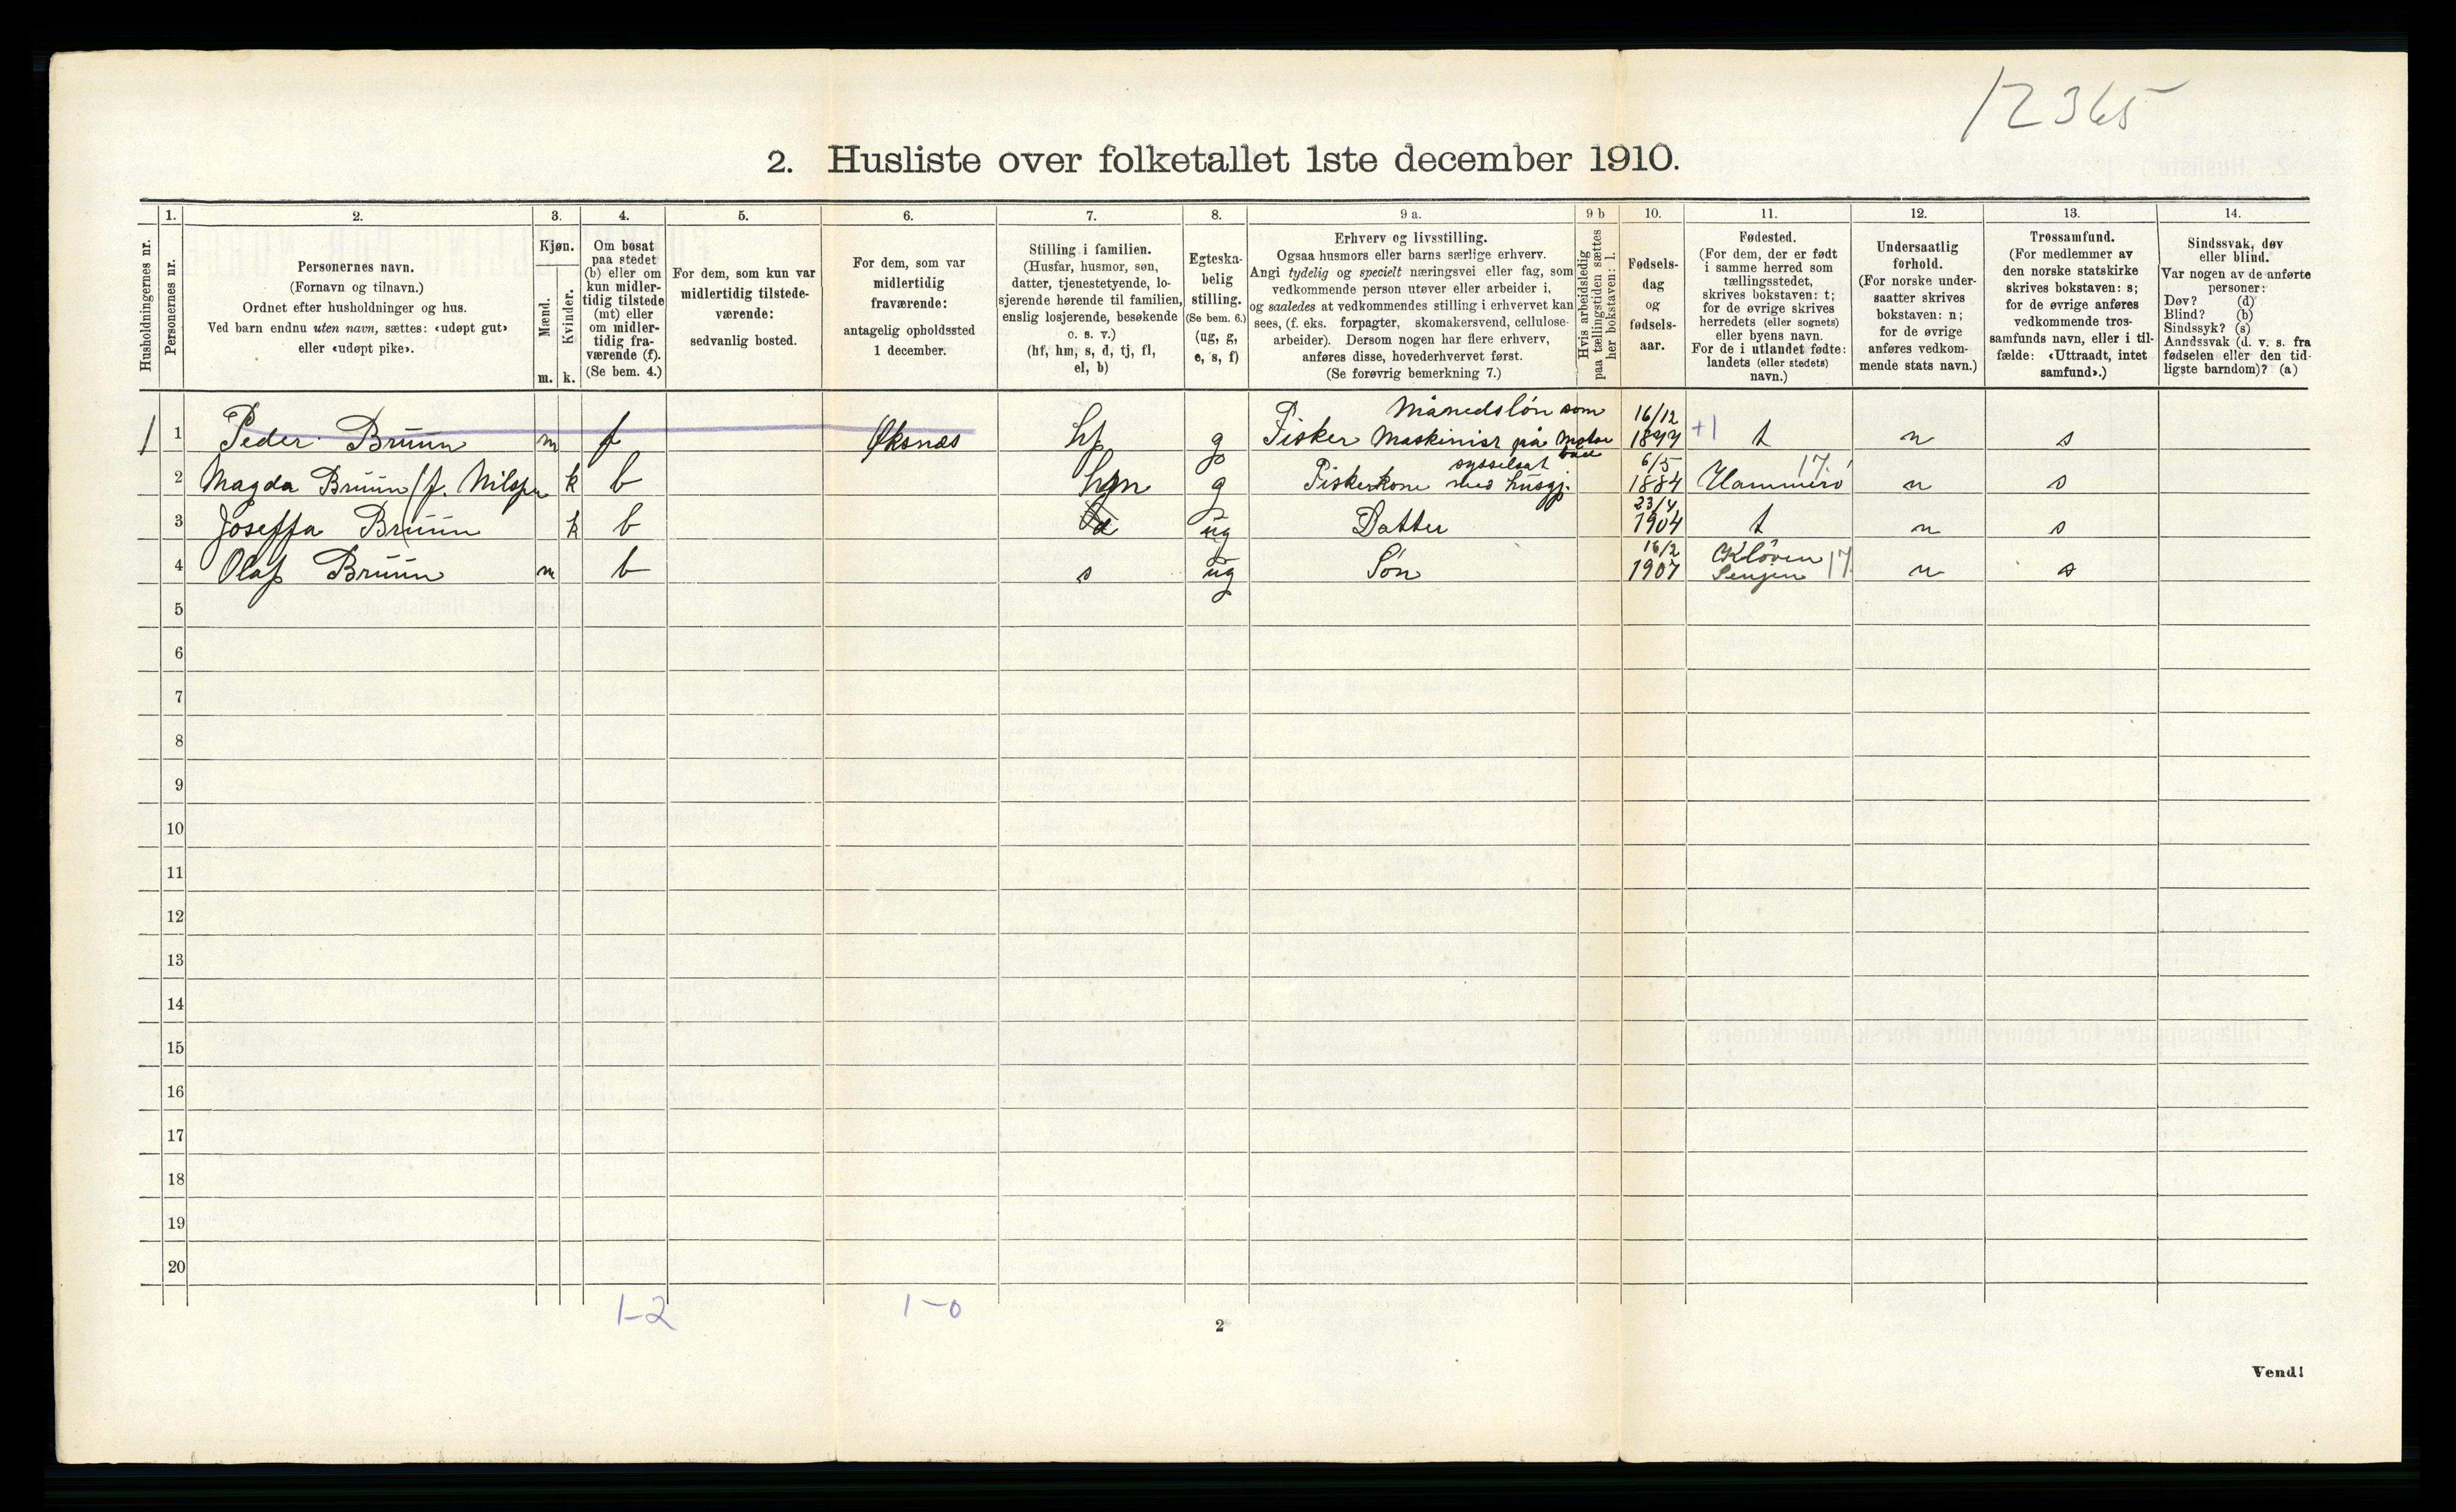 12365
2. Husliste over folketallet 1ste december 1910.
Husholdningernes nr.
1.
Personernes nr.
2.
Personernes navn.
(Fornavn og tilnavn.)
Ordnet efter husholdninger og hus.
Ved barn endnu uten navn, sættes: «udøpt gut»
eller «udøpt pike».
3.
Kjøn.
Mænd.
Kvinder.
m. k.
4.
Om bosat
paa stedet
(b) eller om
kun midler-
tidig tilstede
(mt) eller
om midler-
tidig fra-
værende (f).
(Se bem. 4.)
5.
For dem, som kun var
midlertidig tilstede-
værende:
sedvanlig bosted.
6.
For dem, som var
midlertidig
fraværende:
antagelig opholdssted
1 december.
7.
Stilling i familien.
(Husfar, husmor, søn,
datter, tjenestetyende, lo-
sjerende hørende til familien,
enslig losjerende, besøkende
o. s. v.)
(hf, hm, s, d, tj, fl,
el, b)
8.
Egteska-
belig
stilling.
(Se bem. 6.)
(ug, g,
e, s, f)
9 a.
Erhverv og livsstilling.
Ogsaa husmors eller barns særlige erhverv.
Angi tydelig og specielt næringsvei eller fag, som
vedkommende person utøver eller arbeider i,
og saaledes at vedkommendes stilling i erhvervet kan
sees, (f. eks. forpagter, skomakersvend, cellulose-
arbeider). Dersom nogen har flere erhverv,
anføres disse, hovederhvervet først.
(Se forøvrig bemerkning 7.)
9 b
Hvis arbeidsledig
paa tællingstiden sættes
her bokstaven: l.
10.
Fødsels-
dag
og
fødsels-
aar.
11.
Fødested.
(For dem, der er født
i samme herred som
tællingsstedet,
skrives bokstaven: t;
for de øvrige skrives
herredets (eller sognets)
eller byens navn.
For de i utlandet fødte:
landets (eller stedets)
navn.)
12.
Undersaatlig
forhold.
(For norske under-
saatter skrives
bokstaven: n;
for de øvrige
anføres vedkom-
mende stats navn.)
13.
Trossamfund.
(For medlemmer av
den norske statskirke
skrives bokstaven: s;
for de øvrige anføres
vedkommende tros-
samfunds navn, eller i til-
fælde: «Uttraadt, intet
samfund».)
14.
Sindssvak, døv
eller blind.
Var nogen av de anførte
personer:
Døv? (d)
Blind? (b)
Sindssyk? (s)
Aandssvak (d. v. s. fra
fødselen eller den tid-
ligste barndom)? (a)
Månedsløn som 16/12
1 1 Peder Bruun m f Øksnæs hf g Fisker Maskinist på Motor +1 t n s
båd
sysselsat 6/5 17
2 Magda Bruun (f. Nilsen k b hm g Fiskerkone med husgj. 1884 Hammerö n s
23/4
3 Joseffa Bruun k b d ug Datter 1904 t n s
16/2 Klöven
4 Olaf Bruun m b s ug Søn 1907 Senjen 17 n s
5
6
7
8
9
10
11
12
13
14
15
16
17
18
19
20
1-2 1-0
2
Vend!